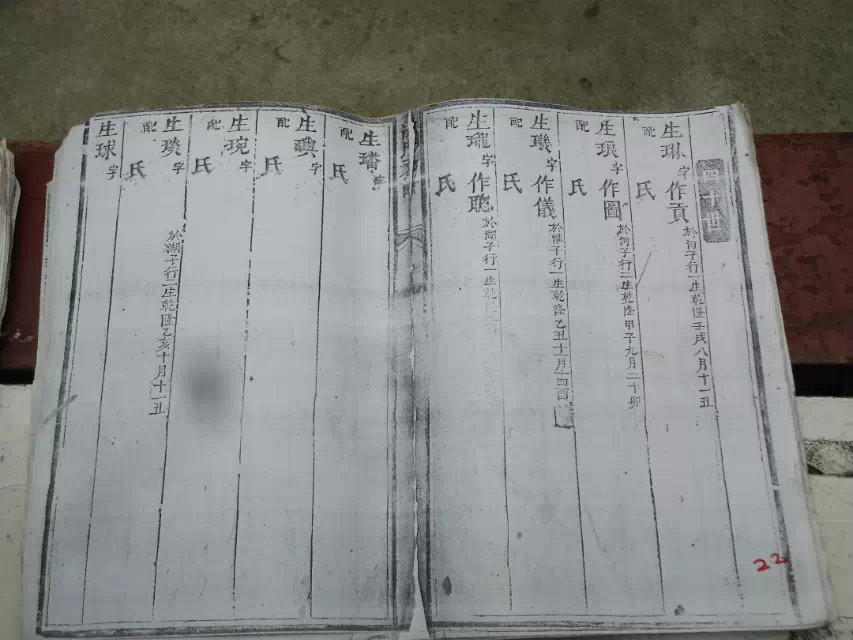 生琳字作貢於河子行一生乾隆壬戌八月十一丑
配氏
生琅字作圖於河子行二生乾隆甲子九月二十卯
配氏
生璣字作儀於淮子行一生乾隆乙丑十月十四酉
配氏
生瓏字作聰於湖子行一生乾隆
配氏
生璿字
配氏
生璵字
配氏
生琬字
配氏
生琰字於湖子行一生乾隆乙亥十月十一丑
配氏
生球字
22